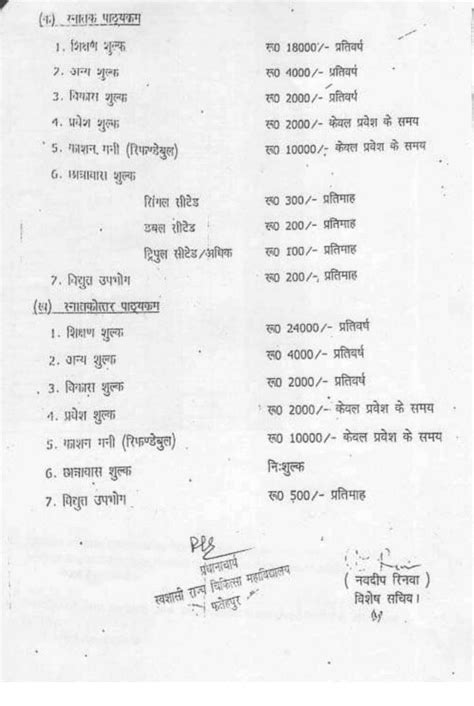 (क) स्नातक पाठ्यक्रम
1. शिक्षण शुल्क रू0 18000/- प्रतिवर्ष
2. अन्य शुल्क रू0 4000/- प्रतिवर्ष
3. विकास शुल्क रू0 2000/- प्रतिवर्ष
4. प्रवेश शुल्क रू0 2000/- केवल प्रवेश के समय
5. काशन मनी (रिफण्डेबुल) रू0 10000/- केवल प्रवेश के समय
6. छात्रावास शुल्क
सिंगल सीटेड रू0 300/- प्रतिमाह
डबल सीटेड रू0 200/- प्रतिमाह
ट्रिपुल सीटेड/अधिक रू0 100/- प्रतिमाह
7. विद्युत उपभोग रू0 200/- प्रतिमाह
(ख) स्नातकोत्तर पाठ्यक्रम
1. शिक्षण शुल्क रू0 24000/- प्रतिवर्ष
2. अन्य शुल्क रू0 4000/- प्रतिवर्ष
3. विकास शुल्क रू0 2000/- प्रतिवर्ष
4. प्रवेश शुल्क रू0 2000/- केवल प्रवेश के समय
5. काशन मनी (रिफण्डेबुल) रू0 10000/- केवल प्रवेश के समय
6. छात्रावास शुल्क निःशुल्क
7. विद्युत उपभोग रू0 500/- प्रतिमाह
प्रधानाचार्य
स्वशासी राज्य चिकित्सा महाविद्यालय
फतेहपुर
( नवदीप रिनवा )
विशेष सचिव।